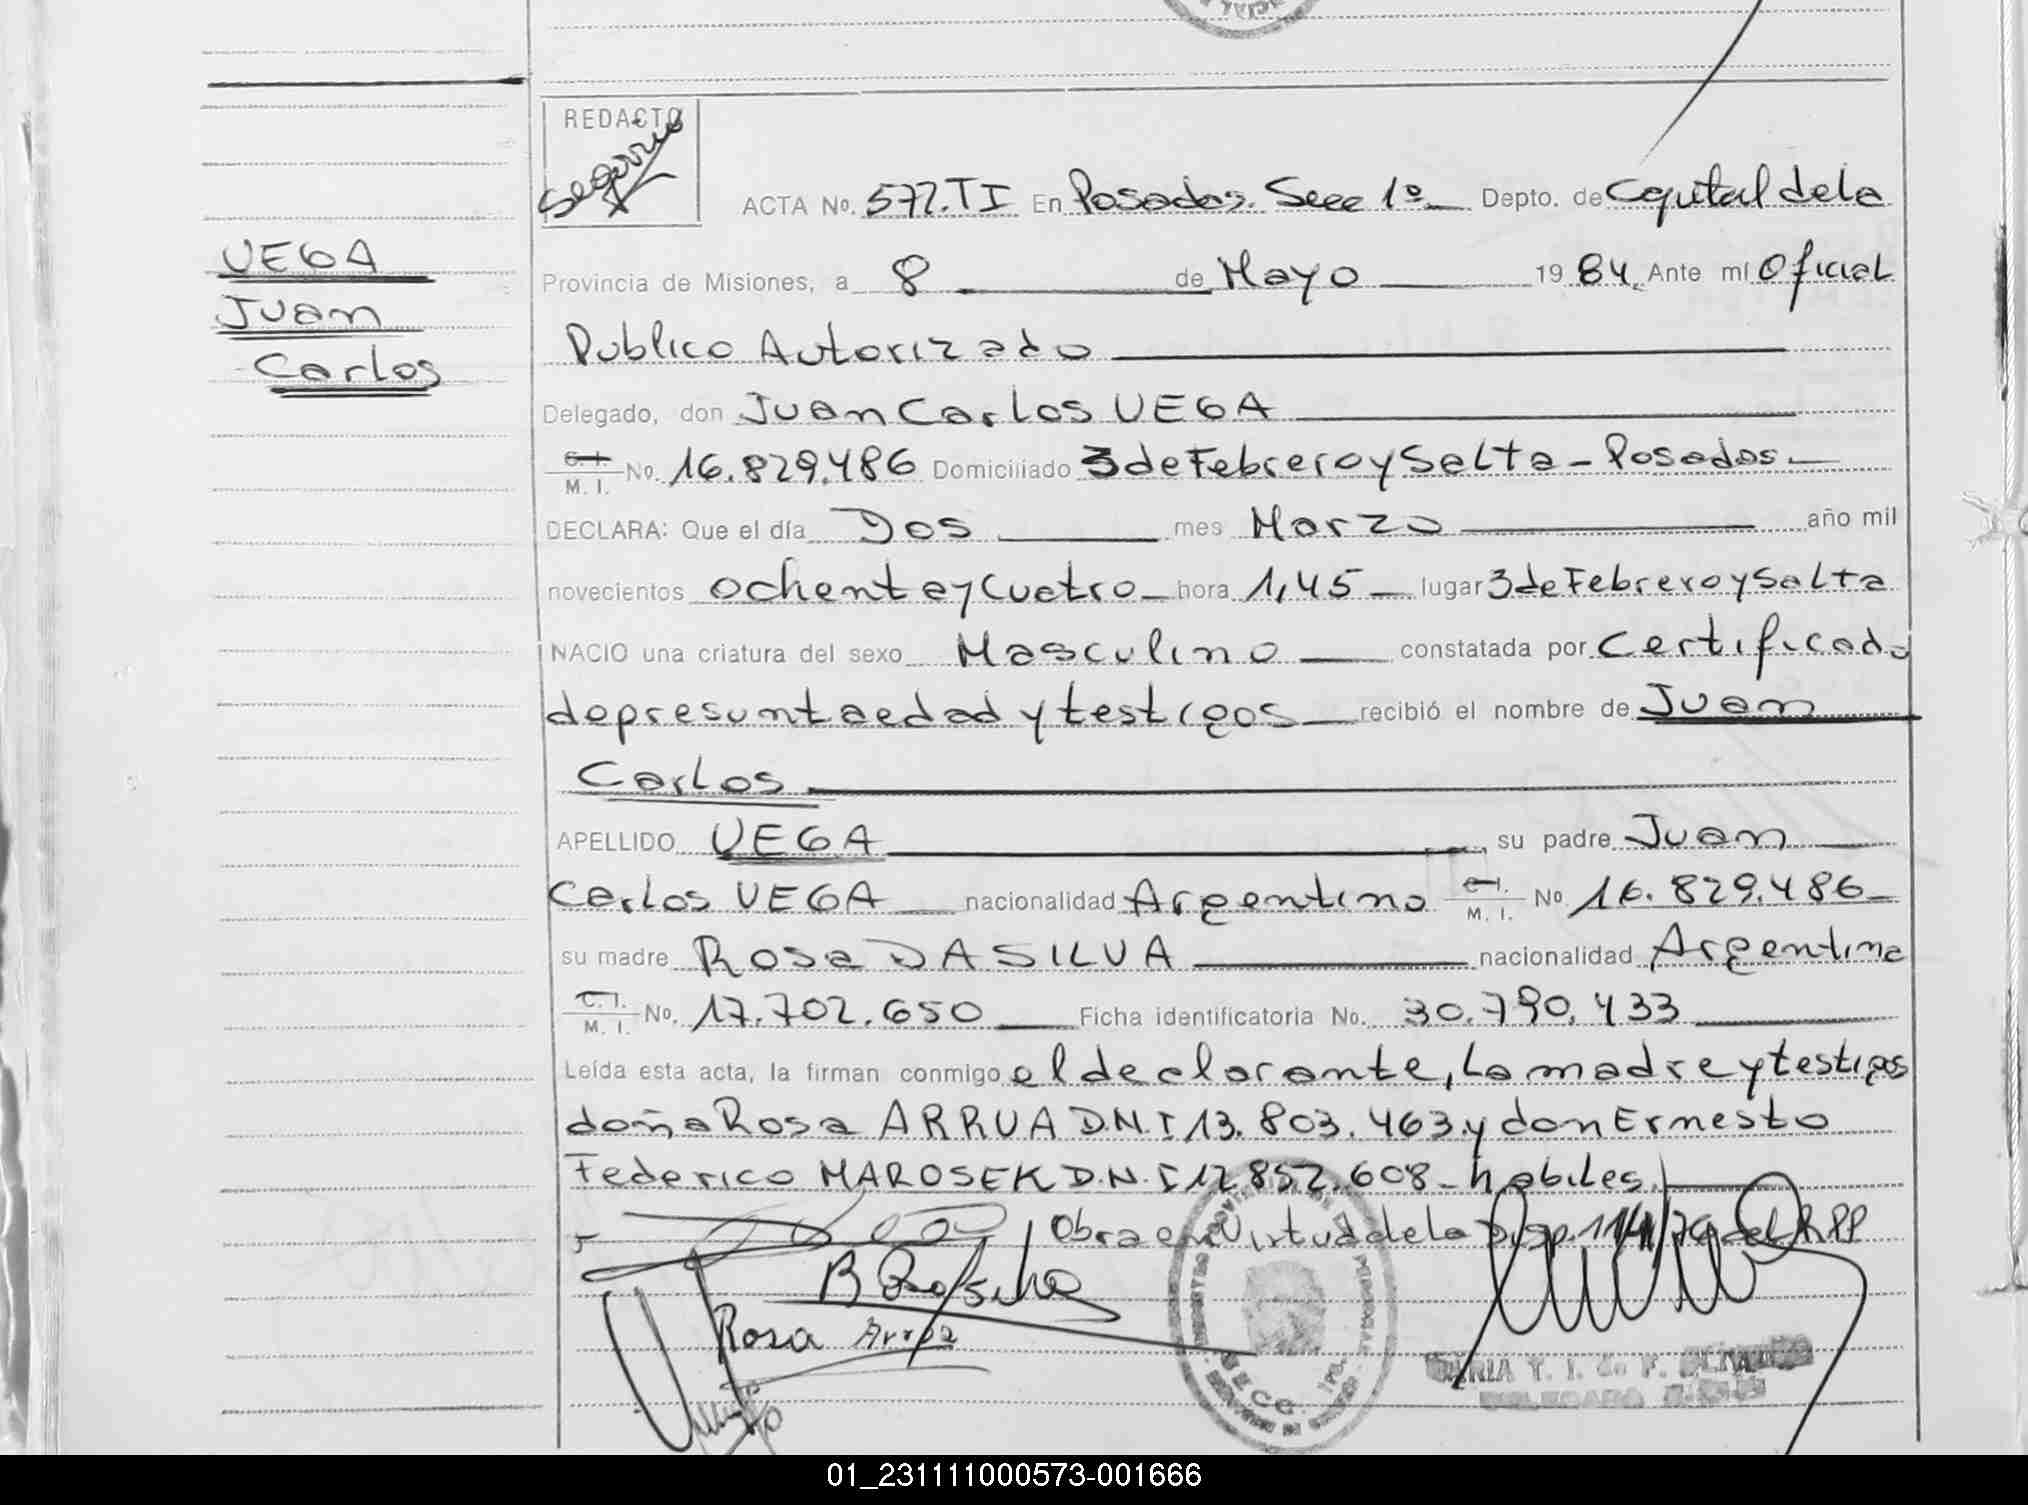 REDACTO
ACTA No. 572.TI En Posadas. Secc 1º Depto. de Capital dela
VEGA
Provincia de Misiones, a 8 de Mayo 1984 Ante mí Oficial
Juan
Publico Autorizado
Carlos
Delegado, don Juan Carlos VEGA
C.I. M. I. No. 16.829.486 Domiciliado 3 de Febrero y Salta - Posadas
DECLARA: Que el día Dos mes Marzo año mil
novecientos ochenta y cuatro hora 1,45 lugar 3 de Febrero y Salta
NACIO una criatura del sexo Masculino constatada por Certificado
de presunta edad y testigos recibió el nombre de Juan
Carlos
APELLIDO VEGA su padre Juan
Carlos VEGA nacionalidad Argentino C.I. M. I. No 16.829.486
su madre Rosa DA SILVA nacionalidad Argentina
C.I. M. I. No. 17.702.650 Ficha identificatoria No. 30.790.433
Leída esta acta, la firman conmigo el declarante, la madre y testigos
doña Rosa ARRUA D.N.I 13.803.463 y don Ernesto
Federico MAROSEK D.N.I 12.852.608 - habiles.
Obra en virtud de la Disp. del RPP
Rosa Arrua
SECC. 1ra.
MARIA T. I. de F.
DELEGADO
01_231111000573-001666